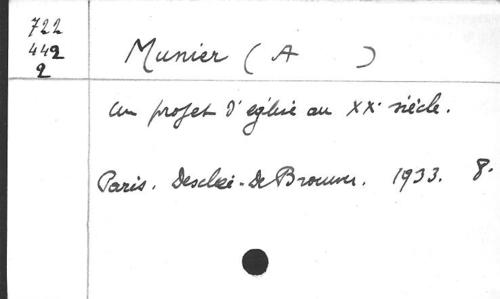 722
442
2
Munier ( A )
Un projet d'église au XXe siècle.
Paris. Desclée-De Brouwer. 1933. 8.